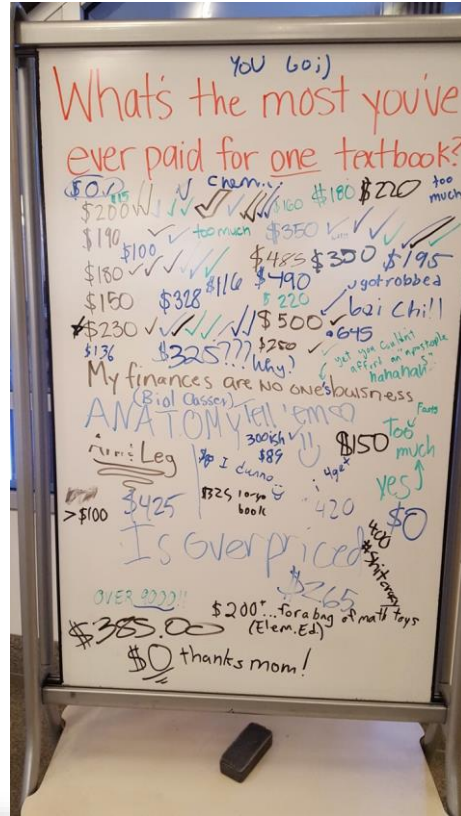 YOU
What's the most you've
ever paid for one textbook?
$0 chem..
$15 $160 $180 $220 too much
$200
$190 too much $350 $195
$100 $485 $300
$180 $116 $490 u got robbed
$150 $328 $220 boi chill
$230 $500 645
$136 $325??? why? $250 yet you couldn't
afford an apostrophe
hahahah
My finances are NO one's buisness
(Biol Classes)
ANATOMY Tell 'em
300ish
Arm & Leg $89 $150 Too much
I dunno..
yes
>$100 $425 $325 book 420 $0
400
Is Overpriced
$265
OVER 9000!!
$200... for a bag of math toys
(Elem. Ed)
$385.00
$0 thanks mom!